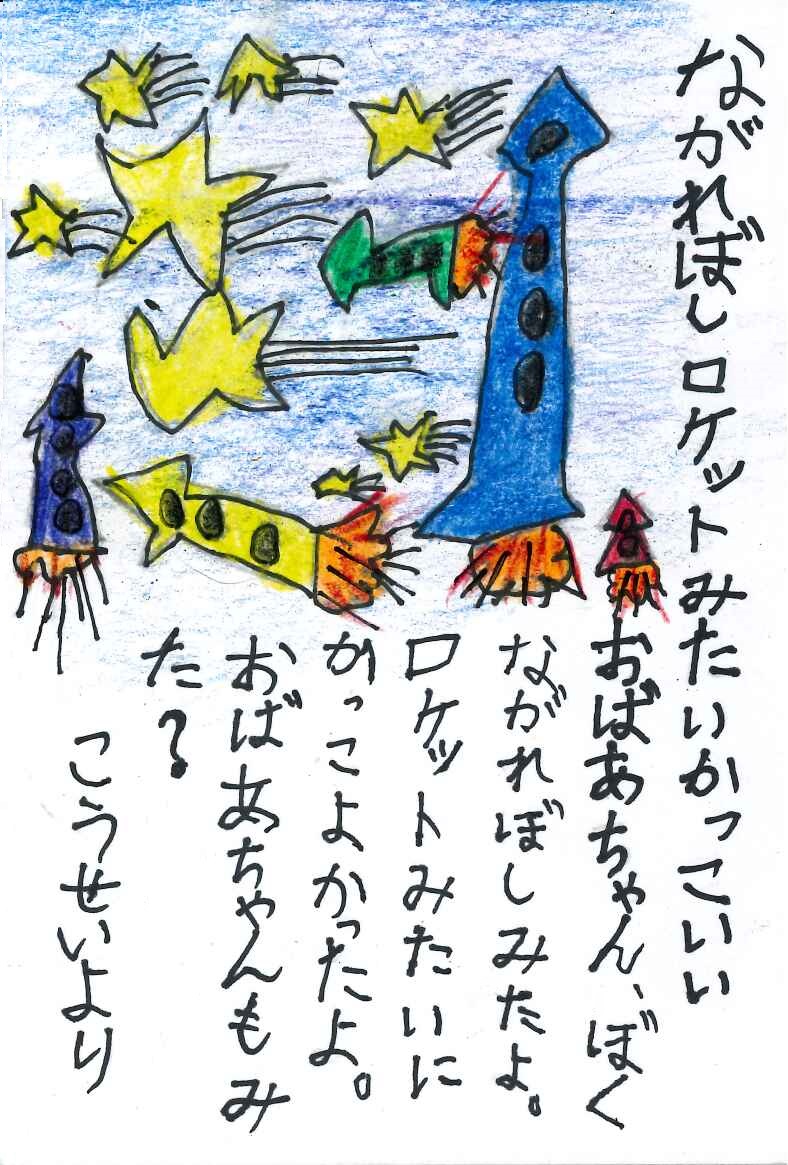 ながればしロケットみたいかっこいい
おばあちゃん、ぼく
ながれぼしみたよ。
ロケットみたいに
かっこよかったよ。
おばあちゃんもみ
た？
こうせいより